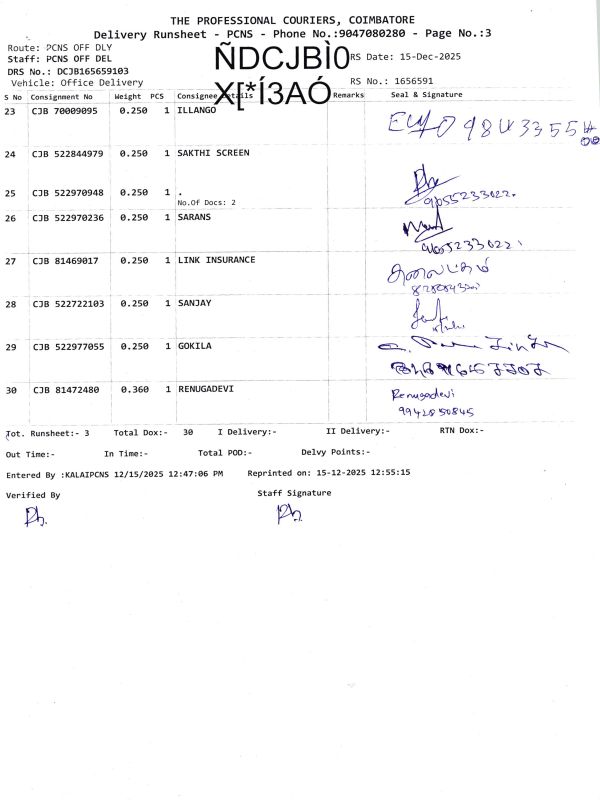 THE PROFESSIONAL COURIERS, COIMBATORE
Delivery Runsheet - PCNS - Phone No.:9047080280 - Page No.:3
Route: PCNS OFF DLY
Staff: PCNS OFF DEL
DRS No.: DCJB165659103
Vehicle: Office Delivery
ÑDCJBÌ0
X[*Í3AÓ
RS Date: 15-Dec-2025
RS No.: 1656591
S No Consignment No Weight PCS Consignee Details Remarks Seal & Signature
23 CJB 70009095 0.250 1 ILLANGO
24 CJB 522844979 0.250 1 SAKTHI SCREEN
25 CJB 522970948 0.250 1 .
No.Of Docs: 2
26 CJB 522970236 0.250 1 SARANS
27 CJB 81469017 0.250 1 LINK INSURANCE
28 CJB 522722103 0.250 1 SANJAY
29 CJB 522977055 0.250 1 GOKILA
30 CJB 81472480 0.360 1 RENUGADEVI Renugadevi
9942850845
Tot. Runsheet:- 3 Total Dox:- 30 I Delivery:- II Delivery:- RTN Dox:-
Out Time:- In Time:- Total POD:- Delvy Points:-
Entered By :KALAIPCNS 12/15/2025 12:47:06 PM Reprinted on: 15-12-2025 12:55:15
Verified By Staff Signature